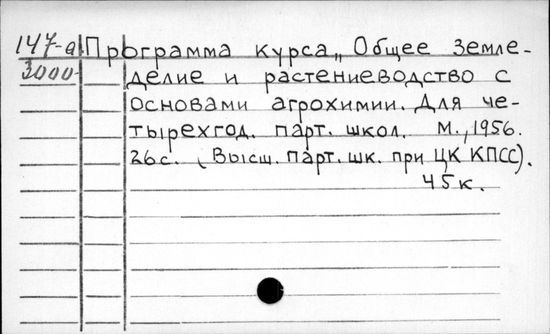 147-а Программа курса „Общее земле-
3000 делие и растениеводство с
основами агрохимии. Для че-
тырехгод. парт. школ. М., 1956.
26с. (Высш. парт. шк. при ЦК КПСС).
45к.